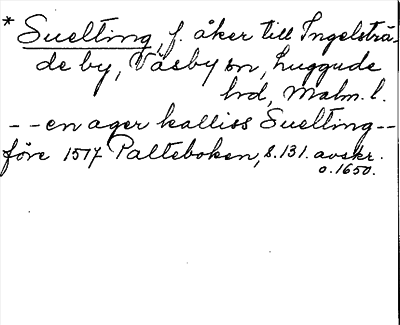 * Suelting, f. åker till Ingelsträ-
de by, Väsby sn, Luggude
hd, Malm. l.
-- en ager kalliss Suelting --
före 1517 Palteboken, s. 131. avskr.
o. 1650.